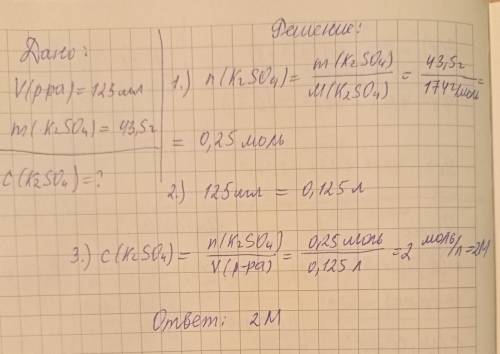 Дано:
V(р-ра) = 125 мл
m(K2SO4) = 43,5г
C(K2SO4) = ?
Решение:
1.) n(K2SO4) = m(K2SO4) / M(K2SO4) = 43,5г / 174г/моль =
= 0,25 моль
2.) 125 мл = 0,125 л
3.) C(K2SO4) = n(K2SO4) / V(р-ра) = 0,25 моль / 0,125 л = 2 моль/л = 2М
Ответ: 2М